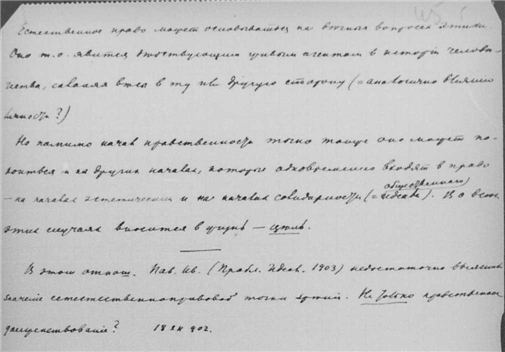 Естественное право может основываться на вечных вопросах этики.
Оно т.о. явится действующим живым агентом в исторіи челове-
чества, склоняя вѣсы в ту или другую сторону (= аналогично вліянію
личности?)
Но помимо начал нравственности точно также оно может по-
коиться и на других началах, которые одновременно входят в право
– на началах эстетических и на началах солидарности (= общественного идеала). Во всех
этих случаях вносится в жизнь – цѣль.
В этом отнош. Пав. Ив. (Пробл. Идеал. 1903) недостаточно выяснил
значеніе естественноправовой точки зрѣнія. Не только нравственное
18 XII 902.